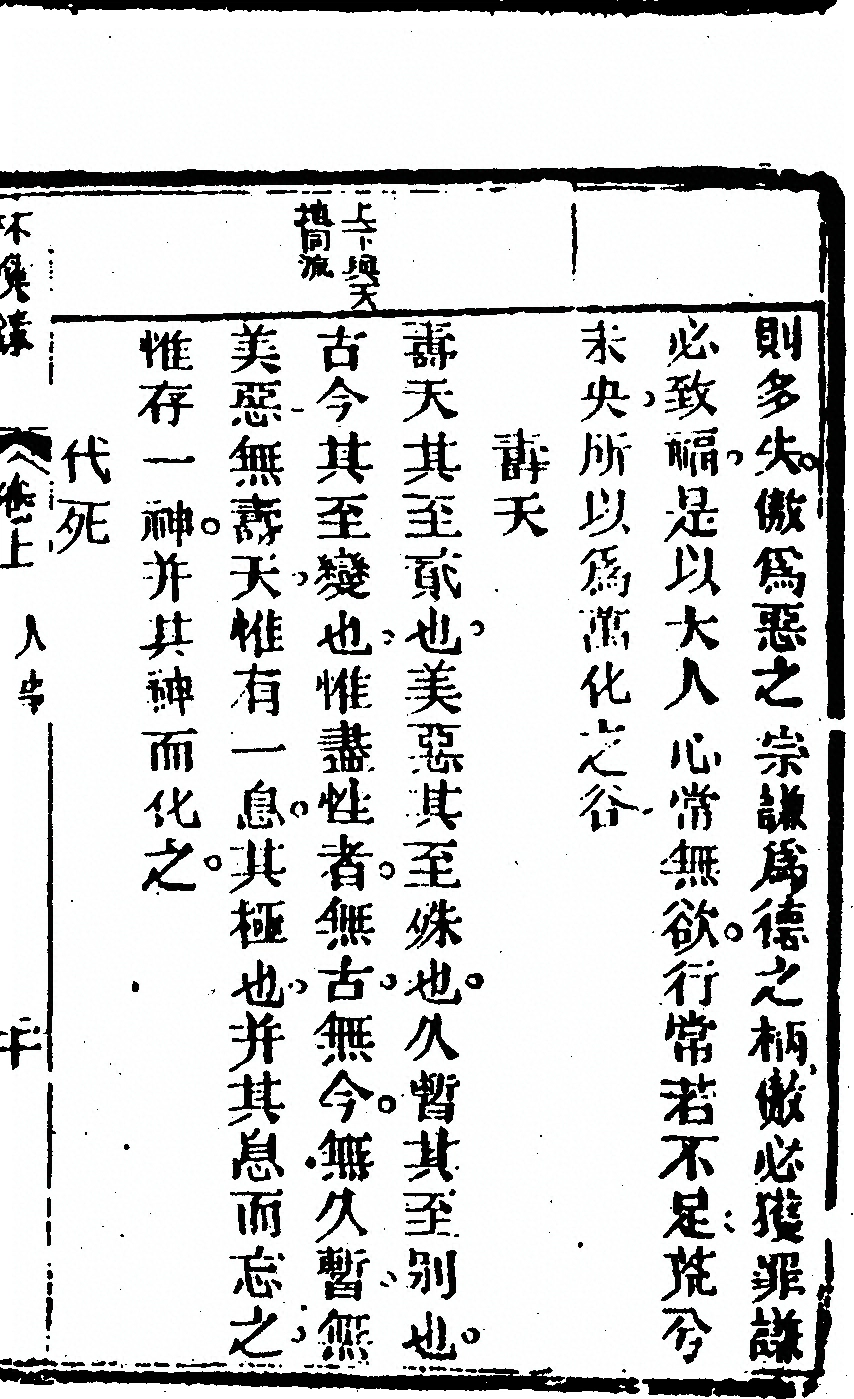 則多失傲爲惡之宗謙爲德之柄傲必獲罪謙
必致福是以大人心常無欲行常若不足荒兮
未央所以爲萬化之谷
壽夭
上下與天
地同流
壽夭其至貳也美惡其至殊也久暫其至别也
古今其至變也惟盡性者無古無今無久暫無
美惡無壽夭惟有一息其極也并其息而忘之
惟存一神并其神而化之
代死
卷上
人事
十